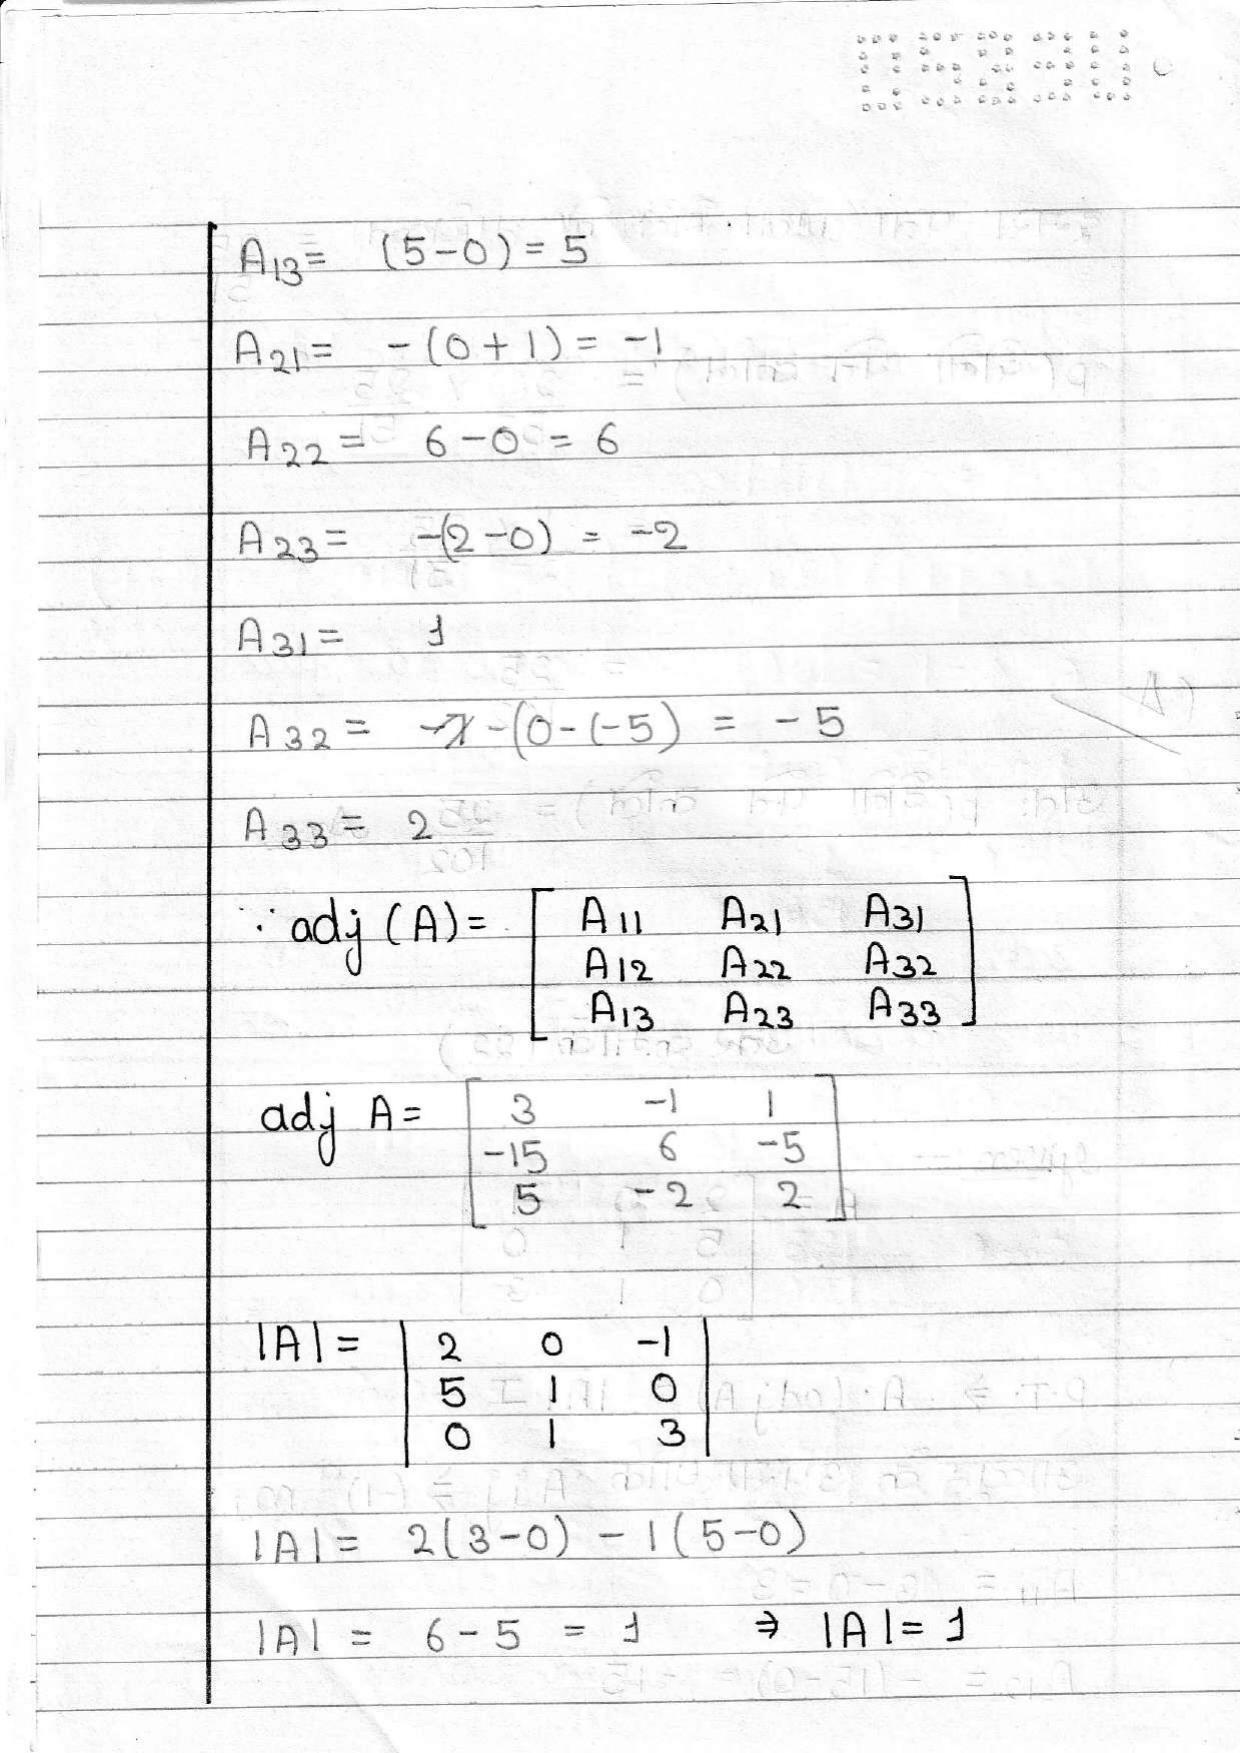 A13 = (5-0) = 5
A21 = -(0+1) = -1
A22 = 6-0 = 6
A23 = -(2-0) = -2
A31 = 1
A32 = -(0-(-5) = -5
A33 = 2
∵ adj (A) = [ A11 A21 A31
A12 A22 A32
A13 A23 A33 ]
adj A = [ 3 -1 1
-15 6 -5
5 -2 2 ]
|A| = | 2 0 -1 |
| 5 1 0 |
| 0 1 3 |
|A| = 2(3-0) - 1(5-0)
|A| = 6-5 = 1 ⇒ |A| = 1